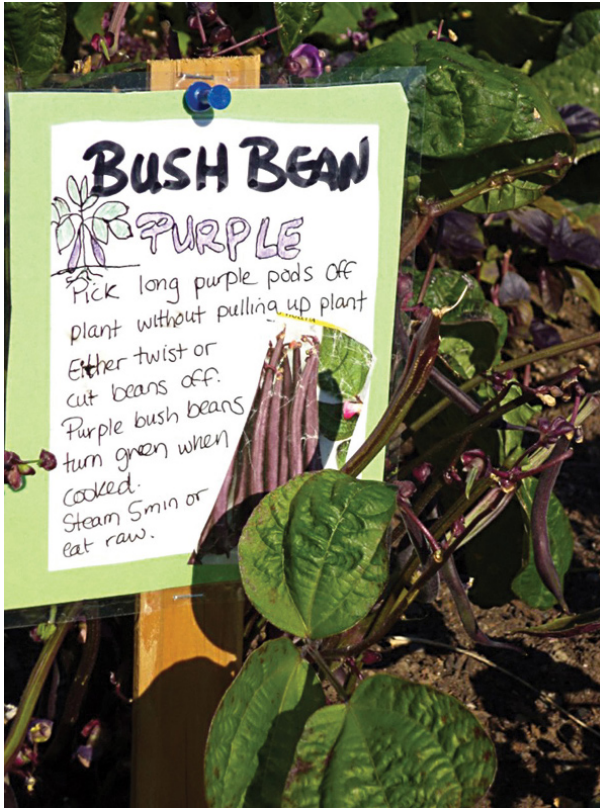 BUSH BEAN
PURPLE
Pick long purple pods off
plant without pulling up plant
Either twist or
cut beans off.
Purple bush beans
turn green when
cooked.
Steam 5min or
eat raw.